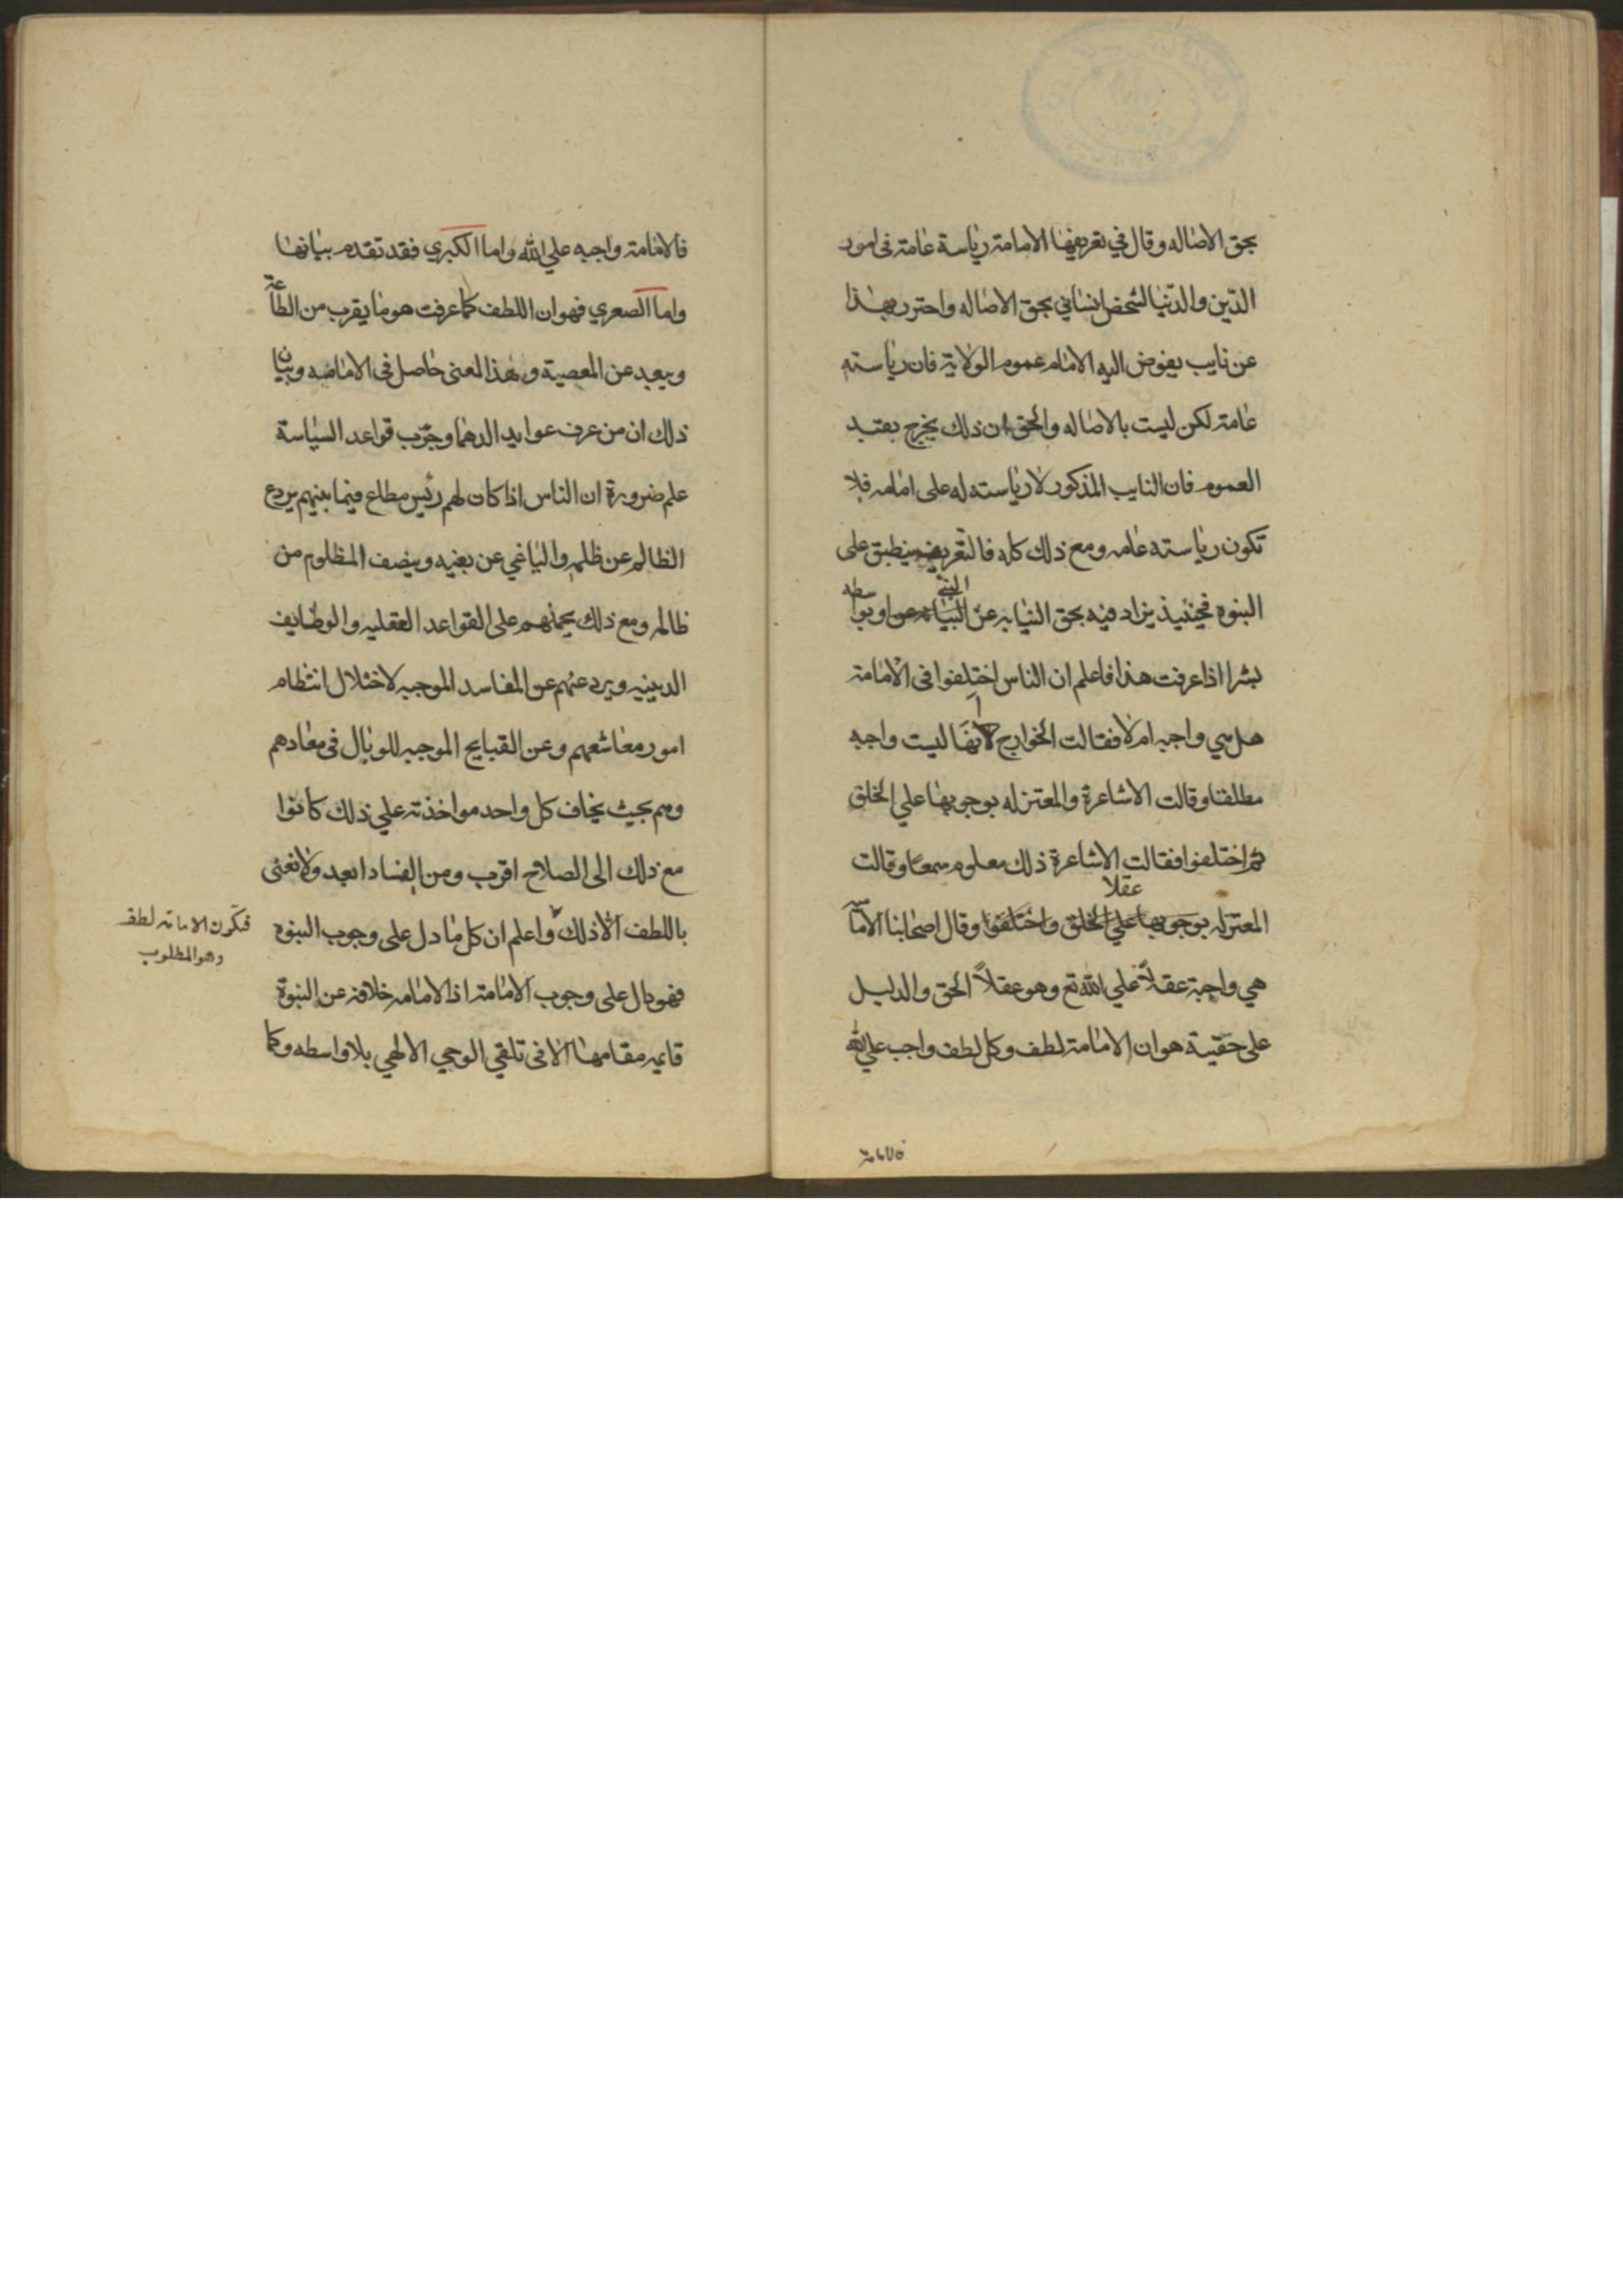 بحق الاصاله وقال في تعريفها الامامة رياسة عامة في امور
الدّين والدّنيا لشخص انساني بحق الاصاله واحترز بهذا
عن نايب يفوض اليه الامام عموم الولاية فان رياسته
عامة لكن ليست بالاصاله والحق ان ذلك يخرج بقيد
العموم فان النايب المذكور لا رياسته له على امامه فلا
تكون رياسته عامه ومع ذلك كله فالتعريف ينطبق على
النبوه فحينيذ يزاد فيه بحق النيابه عن النبي او بواسطه
بشر اذا عرفت هذا فاعلم ان الناس اختلفوا في الامامة
هل هي واجبه ام لا فقالت الخوارج انها ليست واجبه
مطلقا وقالت الاشاعرة والمعتزله بوجوبها علي الخلق
ثم اختلفوا فقالت الاشاعرة ذلك معلوم سمعا وقالت
المعتزله عقلا وقال اصحابنا الاماميه
هي واجبة عقلاً علي الله تع وهو عقلاً الحق والدليل
على حقيته هو ان الامامة لطف وكل لطف واجب علي الله
فالامامة
فالامامة واجبه علي الله واما الكبري فقد تقدم بيانها
واما الصغري فهو ان اللطف كما عرفت هو ما يقرب من الطاعة
ويبعد عن المعصية وهذا المعنى حاصل في الامامه وبيان
ذلك ان من عرف عوايد الدهما وجرّب قواعد السياسة
علم ضرورة ان الناس اذا كان لهم رئيس مطاع فيما بينهم يردع
الظالم عن ظلمه والباغي عن بغيه وينصف المظلوم من
ظالمه ومع ذلك يحملهم على القواعد العقليه والوظايف
الدينيه ويردعهم عن المفاسد الموجبه لاختلال انتظام
امور معاشهم وعن القبايح الموجبه للوبال في معادهم
وهم بحيث يخاف كل واحد مواخذته علي ذلك كانوا
مع ذلك الى الصلاح اقرب ومن الفساد ابعد ولا نعنى
باللطف الا ذلك واعلم ان كل ما دل على وجوب النبوه
فهو دال على وجوب الامامة اذ الامامه خلافة عن النبوة
قايمه مقامها الا في تلقي الوحي الالهي بلا واسطه وكما
فتكون الامامة لطف
وهو المطلوب